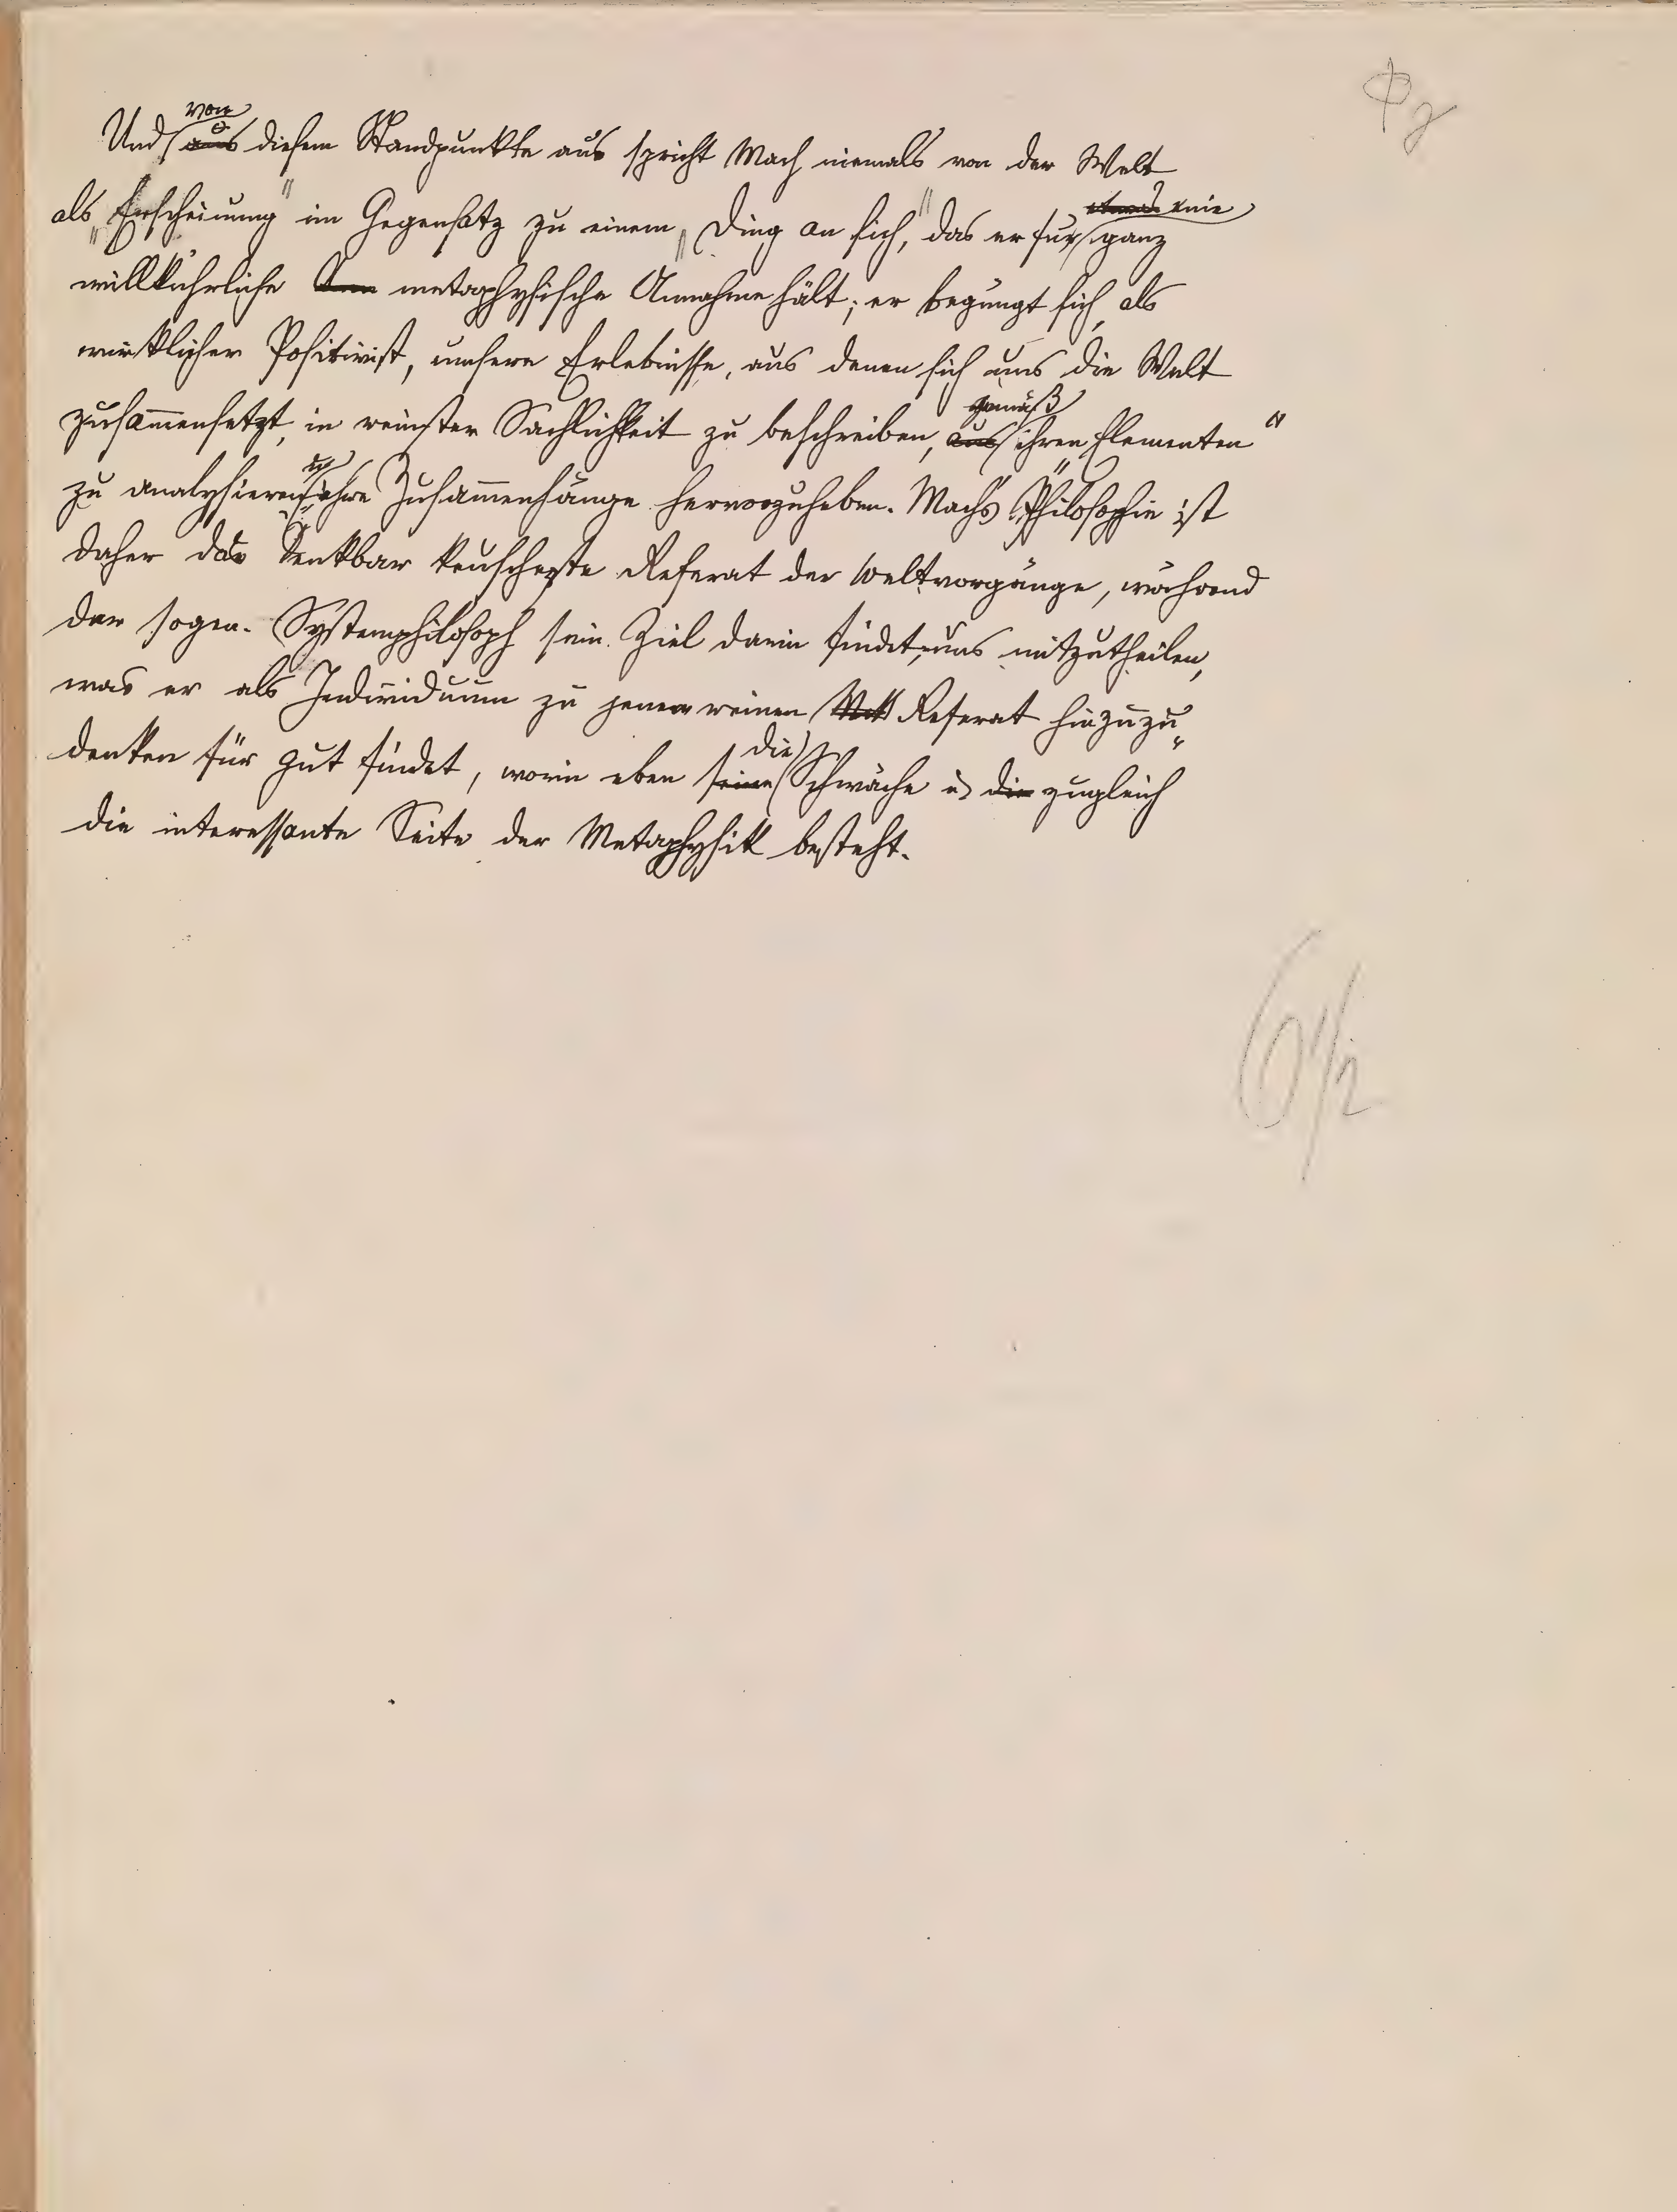 Und von diesem Standpunkte aus spricht Mach niemals von der Welt
als „Erscheinung" im Gegensatz zu einem „Ding an sich," das er für eine ganz
willkührliche metaphysische Annahme hält; er begnügt sich, als
wirklicher Positivist, unsere Erlebnisse, aus denen sich uns die Welt
zusammensetzt, in reinster Sachlichkeit zu beschreiben, gemäß ihren „Elementen"
zu analysieren, ihre Zusammenhänge hervorzuheben. Mach's Philosophie ist
daher das denkbar keuscheste Referat der Weltvorgänge, während
der sogen. Systemphilosoph sein Ziel darin findet, uns mitzutheilen,
was er als Individuum zu jenem reinen Referat hinzuzu„
denken für gut findet, worin eben die Schwäche u zugleich
die interessante Seite der Metaphysik besteht.